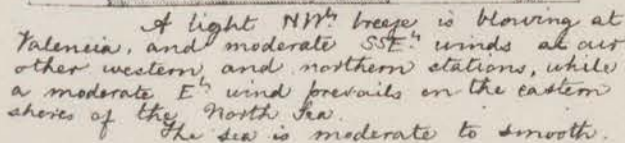 A light NWly breeze is blowing at
Valencia, and moderate SSEly winds at our
other western and northern stations, while
a moderate Ely wind prevails on the eastern
shores of the North Sea.
The sea is moderate to smooth.